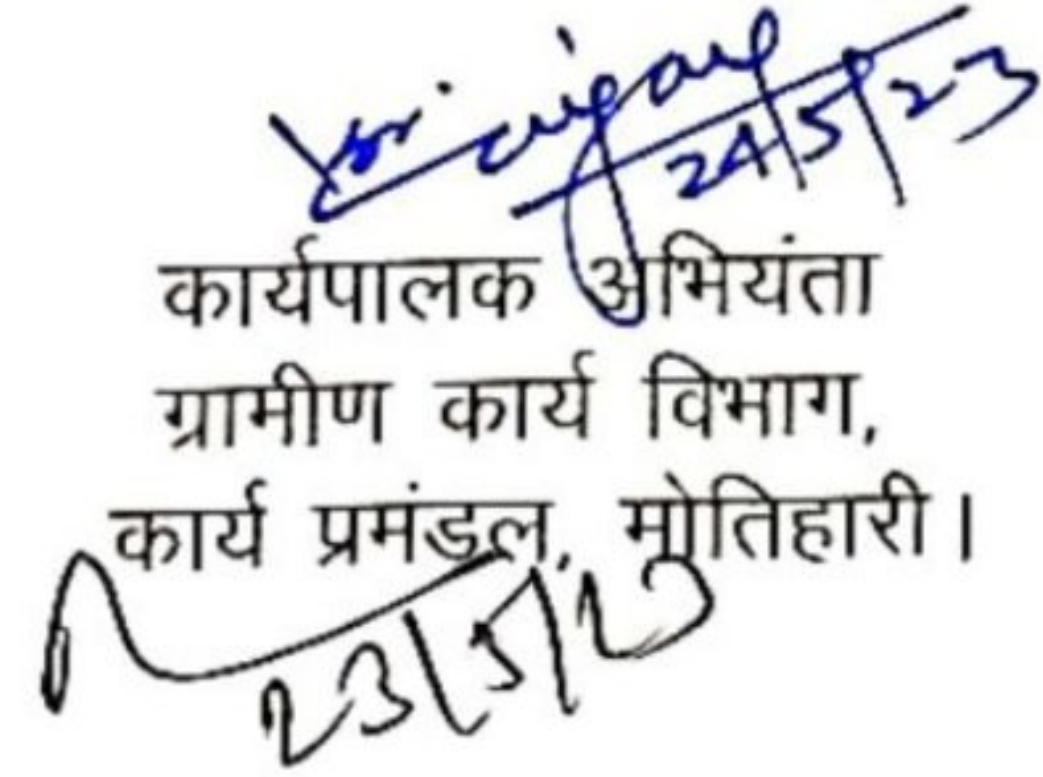 24/5/23
कार्यपालक अभियंता
ग्रामीण कार्य विभाग,
कार्य प्रमंडल, मोतिहारी।
23/5/23